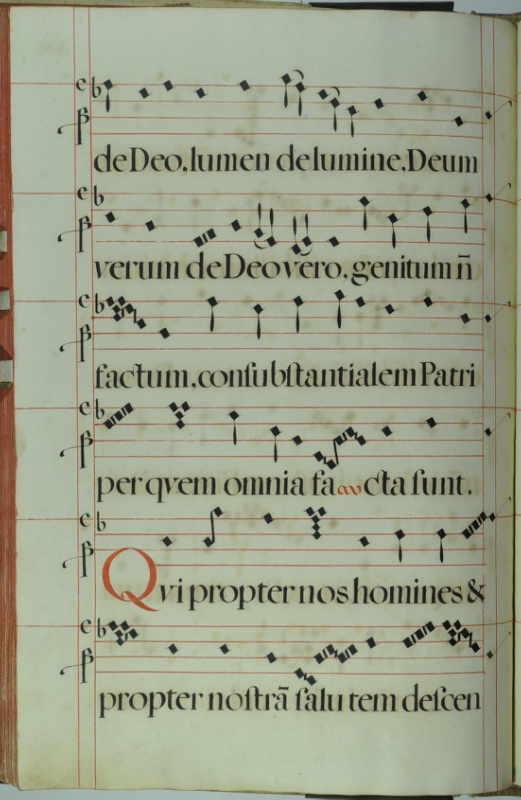 de Deo, lumen de lumine, Deum
verum de Deo vero, genitum n̄
factum, conſubſtantialem Patri
per qvem omnia fa cta ſunt.
Qvi propter nos homines &
propter noſtrā ſalutem deſcen